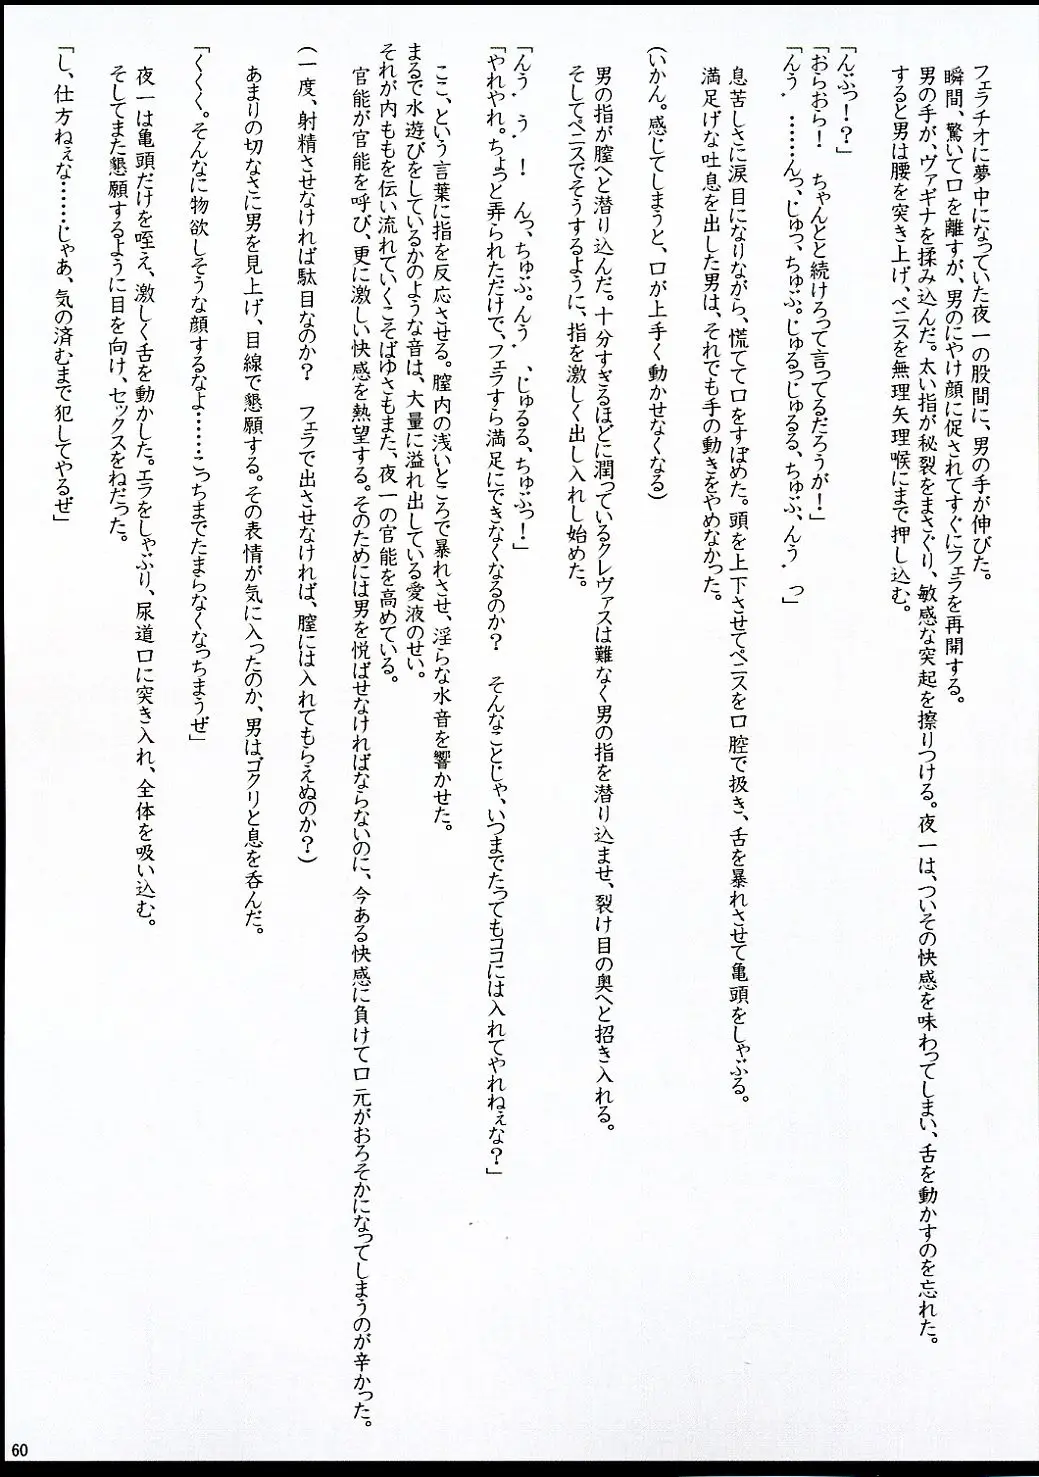 フェラチオに夢中になっていた夜一の股間に、男の手が伸びた。
瞬間、驚いて口を離すが、男のにやけ顔に促されてすぐにフェラを再開する。
男の手が、ヴァギナを揉み込んだ。太い指が秘裂をまさぐり、敏感な突起を擦りつける。夜一は、ついその快感を味わってしまい、舌を動かすのを忘れた。
すると男は腰を突き上げ、ペニスを無理矢理喉にまで押し込む。
「んぶっ!?」
「おらおら!　ちゃんとと続けろって言ってるだろうが!」
「んぅ、……んっ、じゅっ、ちゅぷ。じゅるっじゅるる、ちゅぷ、んぅ、っ」
息苦しさに涙目になりながら、慌てて口をすぼめた。頭を上下させてペニスを口腔で扱き、舌を暴れさせて亀頭をしゃぶる。
満足げな吐息を出した男は、それでも手の動きをやめなかった。
(いかん。感じてしまうと、口が上手く動かせなくなる)
男の指が膣へと潜り込んだ。十分すぎるほどに潤っているクレヴァスは難なく男の指を潜り込ませ、裂け目の奥へと招き入れる。
そしてペニスでそうするように、指を激しく出し入れし始めた。
「んぅ、ぅ、!　んっ、ちゅぷ。んぅ、、じゅるる、ちゅぷっ!」
「やれやれ。ちょっと弄られただけで、フェラすら満足にできなくなるのか?　そんなことじゃ、いつまでたってもココには入れてやれねぇな?」
ここ、という言葉に指を反応させる。膣内の浅いところで暴れさせ、淫らな水音を響かせた。
まるで水遊びをしているかのような音は、大量に溢れ出している愛液のせい。
それが内ももを伝い流れていくこそばゆさもまた、夜一の官能を高めている。
官能が官能を呼び、更に激しい快感を熱望する。そのためには男を悦ばせなければならないのに、今ある快感に負けて口元がおろそかになってしまうのが辛かった。
(一度、射精させなければ駄目なのか?　フェラで出させなければ、膣には入れてもらえぬのか?)
あまりの切なさに男を見上げ、目線で懇願する。その表情が気に入ったのか、男はゴクリと息を呑んだ。
「くくく。そんなに物欲しそうな顔するなよ……こっちまでたまらなくなっちまうぜ」
夜一は亀頭だけを咥え、激しく舌を動かした。エラをしゃぶり、尿道口に突き入れ、全体を吸い込む。
そしてまた懇願するように目を向け、セックスをねだった。
「し、仕方ねぇな……じゃあ、気の済むまで犯してやるぜ」
60